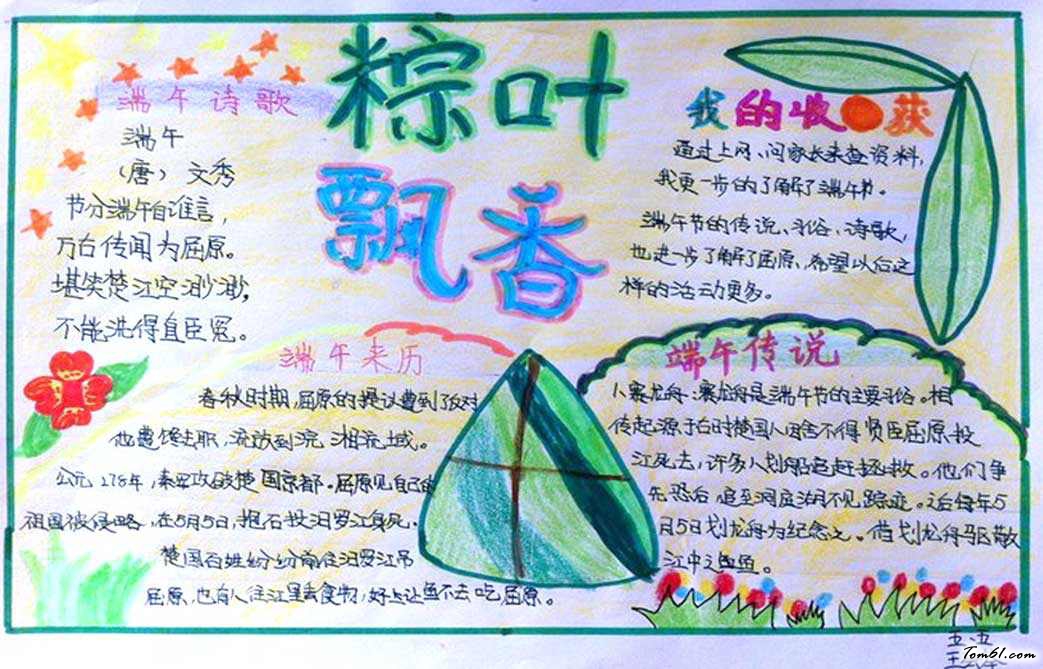 粽叶
飘香
端午诗歌
端午
(唐) 文秀
节分端午自谁言,
万古传闻为屈原。
堪笑楚江空渺渺,
不能洗得直臣冤。
我的收获
通过上网、问家长来查资料,
我更一步的了解了端午节。
端午节的传说、习俗、诗歌,
也进一步了解了屈原、希望以后这
样的活动更多。
端午来历
春秋时期,屈原的提议遭到了反对
他遭馋去职,流放到沅 湘流域。
公元 278年,秦军攻破楚国京都。屈原见自己的
祖国被侵略,在5月5日,抱石投汨罗江身死,
楚国百姓纷纷前往汨罗江吊
屈原,也有人往江里丢食物,好让鱼不去吃屈原。
端午传说
小赛龙舟:赛龙舟是端午节的主要习俗。相
传起源于古时楚国人因舍不得贤臣屈原投
江死去,许多人划船追赶拯救。他们争
先恐后,追至洞庭湖不见踪迹。之后每年5
月5日划龙舟为纪念之。借划龙舟驱散
江中之鱼。
五.五
Tom61.com